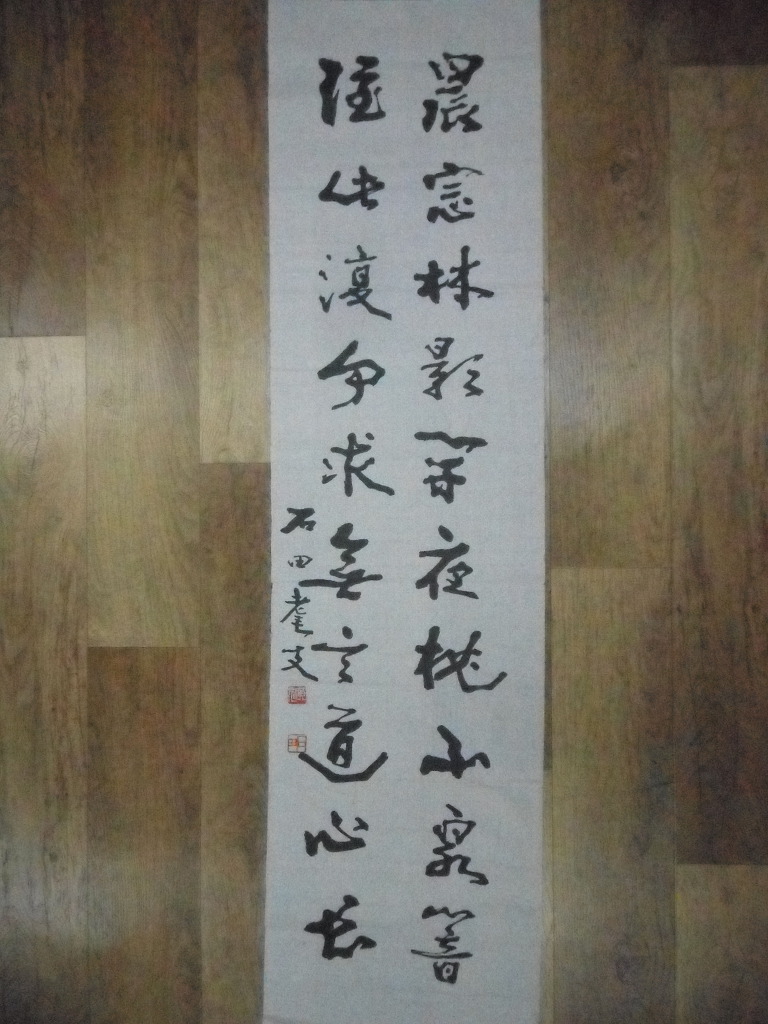 晨窓林影開夜枕山泉響
隱去復何求無言道心長
石田耄